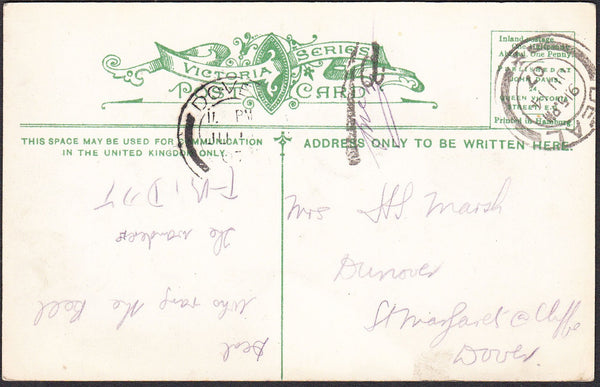 VICTORIA SERIES
POST CARD
Inland postage
One Halfpenny
Abroad One Penny
PUBLISHED AT
QUEEN VICTORIA
STREET E.C.
Printed in Hamburg
DOVER
11 PM
DEAL
THIS SPACE MAY BE USED FOR COMMUNICATION
IN THE UNITED KINGDOM ONLY.
ADDRESS ONLY TO BE WRITTEN HERE.
Deal
Who rang the Bell
The wanderer
Mrs Marsh
Dunover
St Margaret @ Cliffe
Dover